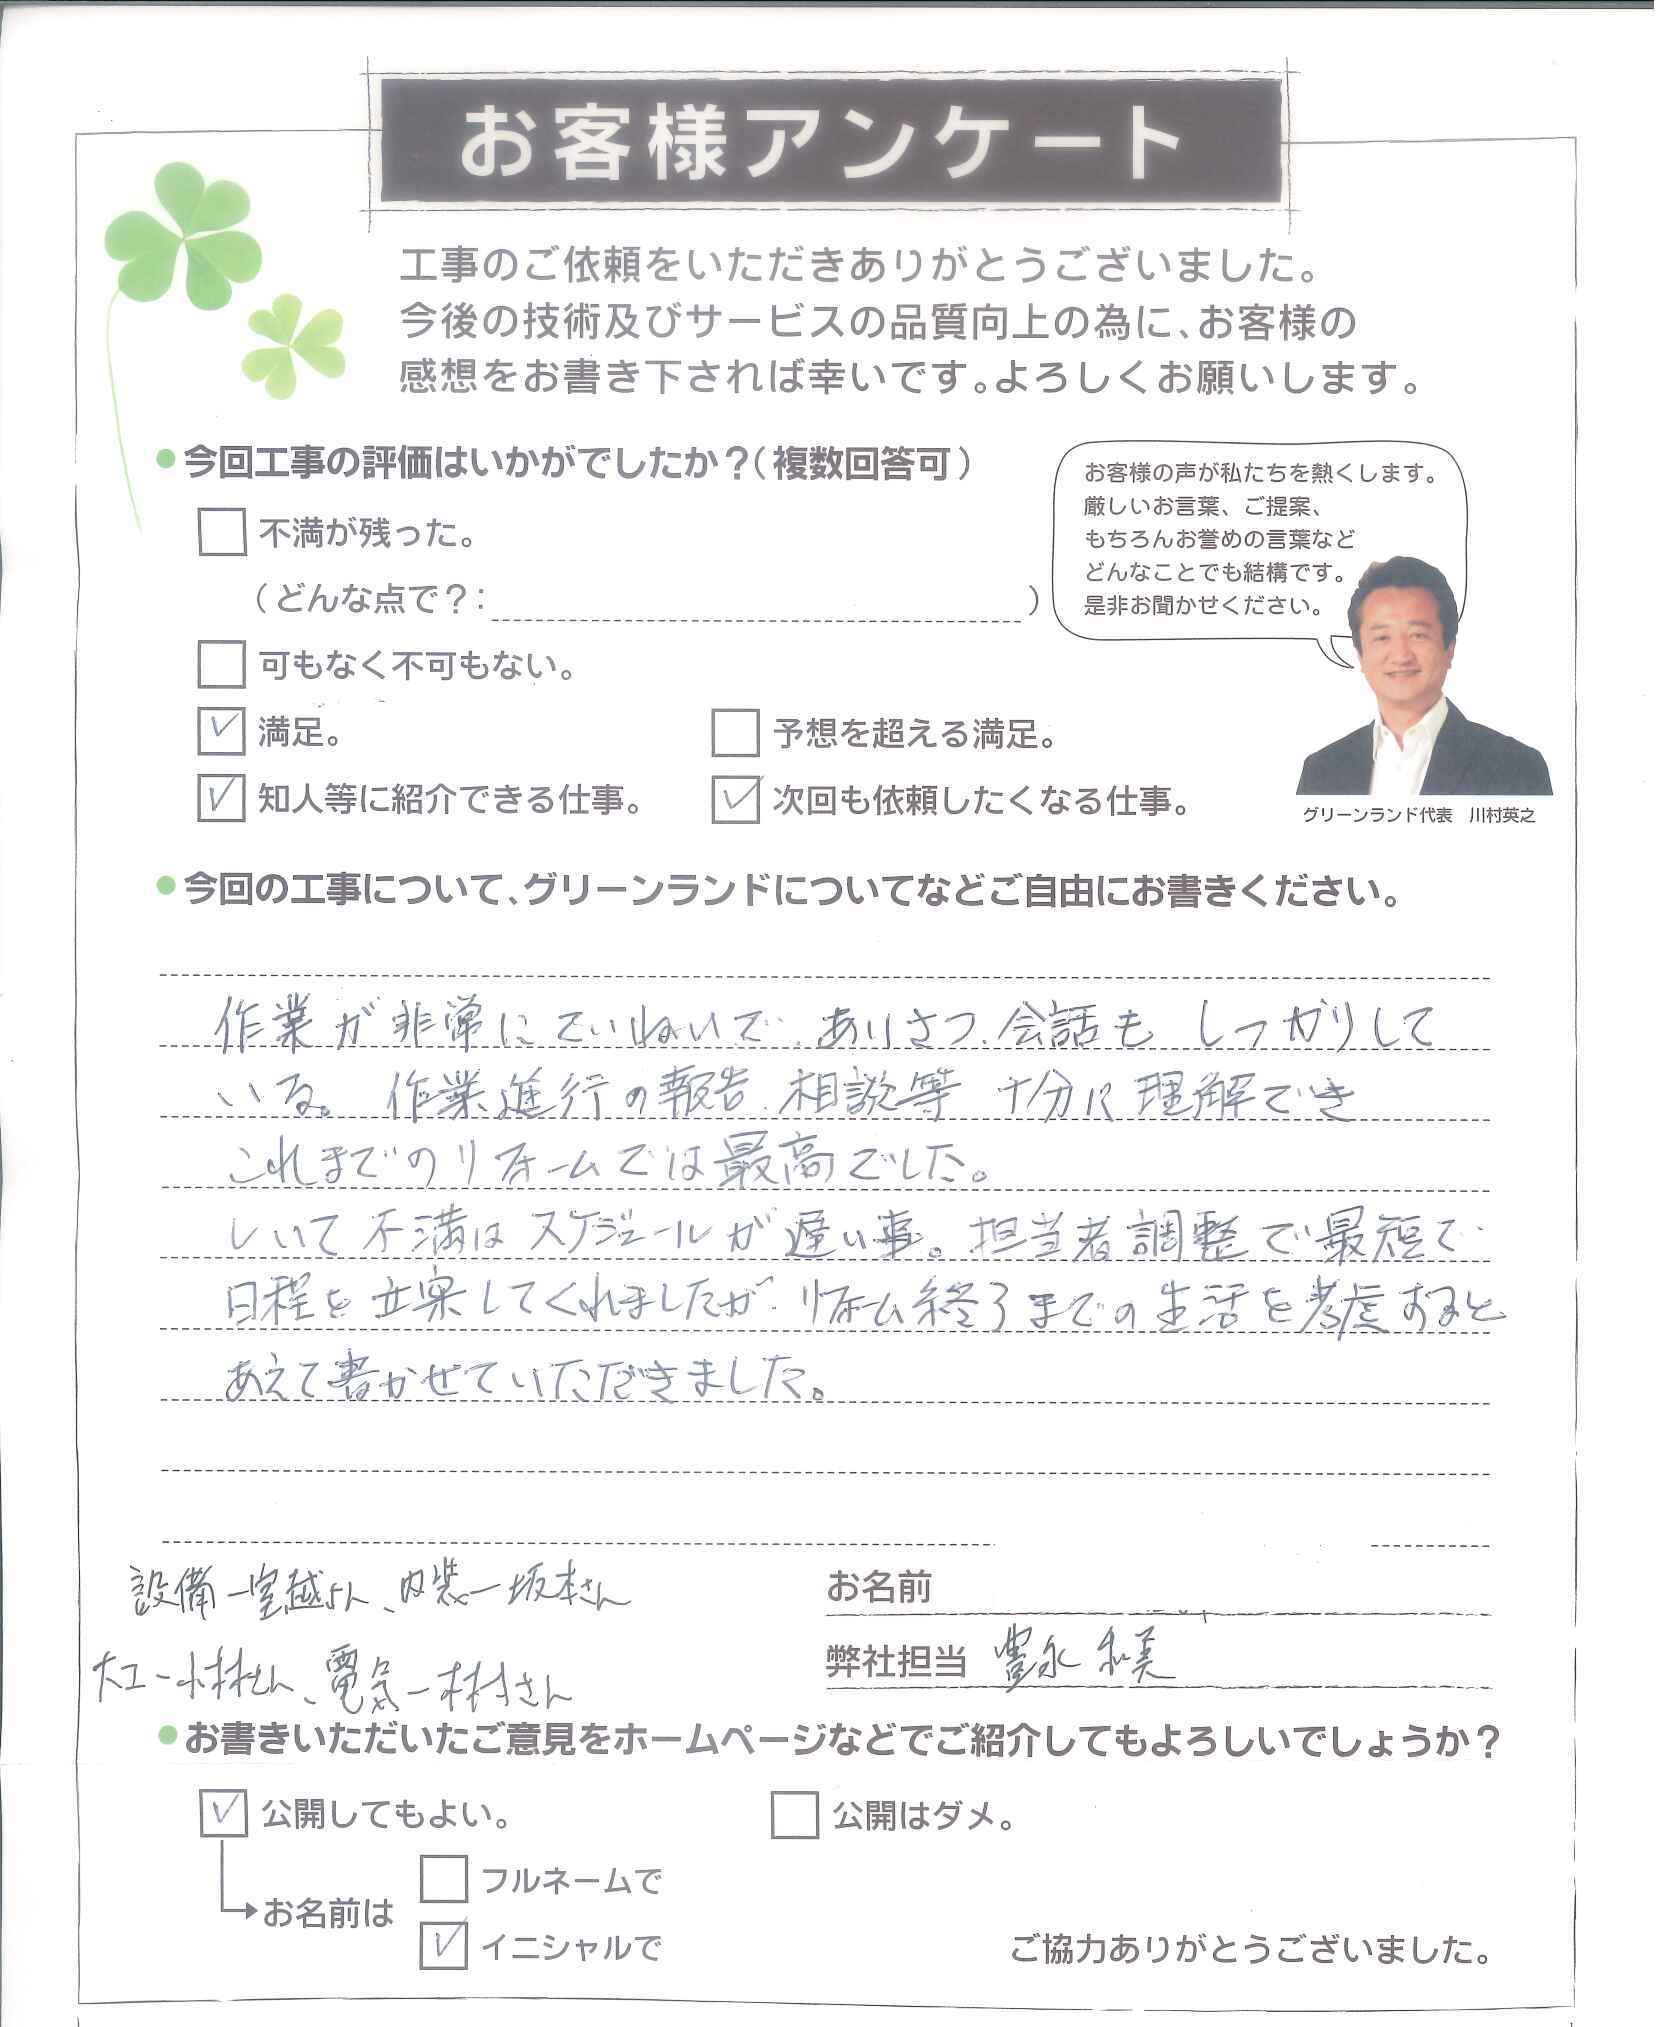 お客様アンケート
工事のご依頼をいただきありがとうございました。
今後の技術及びサービスの品質向上の為に、お客様の
感想をお書き下されば幸いです。よろしくお願いします。
今回工事の評価はいかがでしたか？（複数回答可）
不満が残った。
（どんな点で？： ）
可もなく不可もない。
満足。
予想を超える満足。
知人等に紹介できる仕事。
次回も依頼したくなる仕事。
お客様の声が私たちを熱くします。
厳しいお言葉、ご提案、
もちろんお誉めの言葉など
どんなことでも結構です。
是非お聞かせください。
グリーンランド代表　川村英之
今回の工事について、グリーンランドについてなどご自由にお書きください。
作業が非常にていねいで、あいさつ、会話も しっかりして
いる。 作業進行の報告、相談等 十分に理解でき
これまでのリフォームでは最高でした。
しいて不満はスケジュールが遅い事。担当者調整で最短で
日程を立案してくれましたが、リフォーム終了までの生活を考慮すると
あえて書かせていただきました。
設備ー室越さん、内装ー坂本さん
大工ー小林さん、電気ー木村さん
お名前
弊社担当 豊永 和美
お書きいただいたご意見をホームページなどでご紹介してもよろしいでしょうか？
公開してもよい。
公開はダメ。
お名前は
フルネームで
イニシャルで
ご協力ありがとうございました。